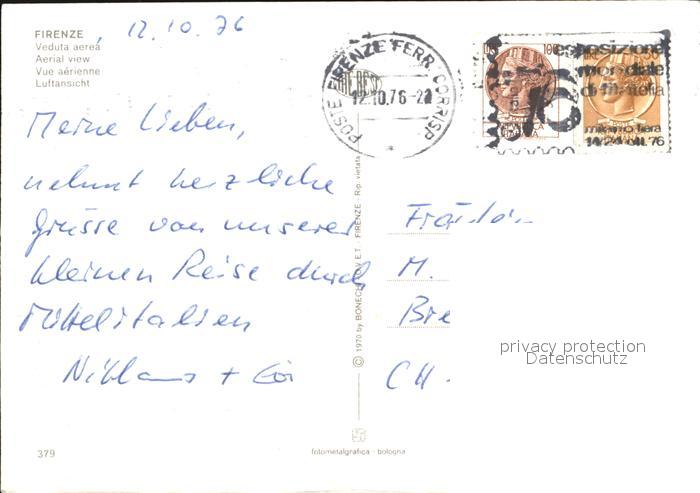 FIRENZE
Veduta aerea
Aerial view
Vue aérienne
Luftansicht
, 12.10.76
Meine Lieben,
nehmt herzliche
Grüsse von unserer
kleinen Reise durch
Mittelitalien
Niklaus +
POSTE FIRENZE FERR. CORRISP.
12.10.76-22
100
esposizione
mondiale
di filatelia
milano fiera
14/24 ott. 76
Fräulein
M.
Bre
CH.
privacy protection
Datenschutz
© 1970 by BONECHI V.E.T. - FIRENZE - Rip. vietata
379
fotometalgrafica - bologna